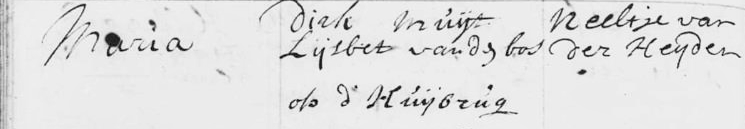 Maria
Dirk Muijt
Lijsbet vandz bos
op d' Huijbrug
Neeltje van
Der Heyden